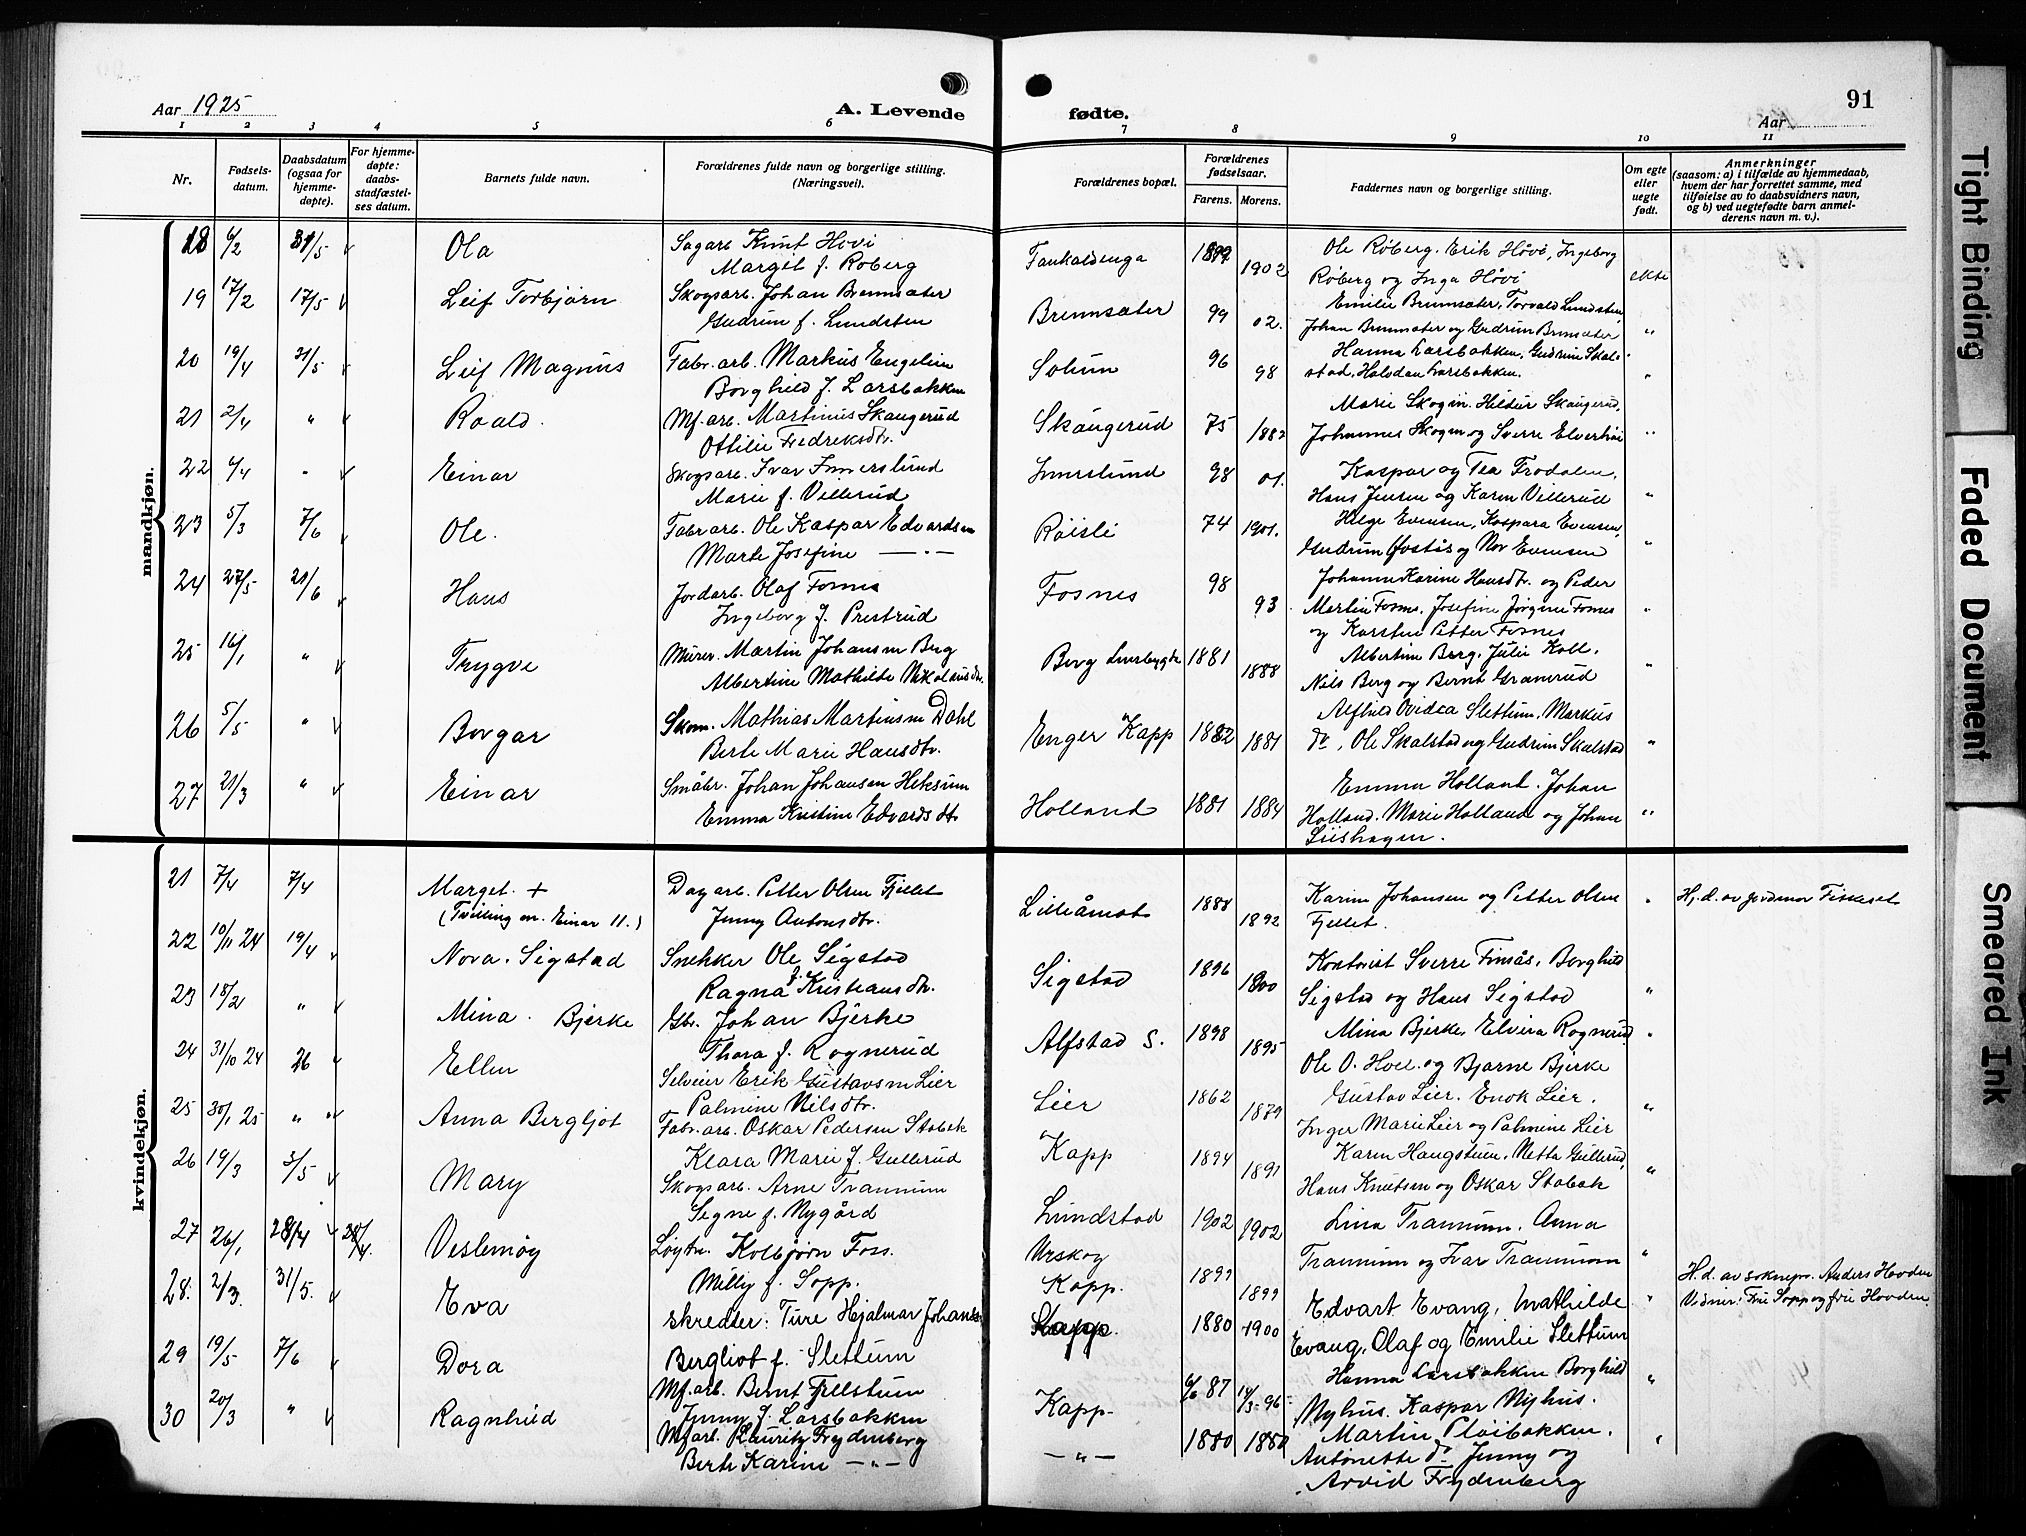 Aar 1925
A. Levende fødte.
91
Aar
1 2 3 4 5 6 7 8 9 10 11
Nr.
Fødsels-datum.
Daabsdatum (ogsaa for hjemme-døpte).
For hjemme-døpte: daabs-stadfæstel-ses datum.
Barnets fulde navn.
Forældrenes fulde navn og borgerlige stilling. (Næringsvei).
Forældrenes bopæl.
Forældrenes fødselsaar.
Farens. Morens.
Faddernes navn og borgerlige stilling.
Om egte eller uegte født.
Anmerkninger (saasom: a) i tilfælde av hjemmedaab, hvem der har forrettet samme, med tilføielse av to daabsvidners navn, og b) ved uegtefødte barn anmel-derens navn m. v.).
mandkjøn.
18 6/2 31/5 Ola Sagarb. Knut Hovi 1899 Ole Røberg. Erik Hövi, Ingeborg
Margit f. Roberg 1902 Røberg og Inga Hövi ekte
19 17/2 17/5 Leif Torbjørn Skogsarb. Johan Brennsæter Brennsæter 99 Emilie Brennsæter, Torvald Lundsten,
Gudrun f. Lundsten 02. Johan Brennsæter og Gudrun Brennsæter "
20 19/4 31/5 Leif Magnus Fabr. arb. Markus Engelien Solum 96 Hanna Larsbakken, Gudrun Skal-
Borghild f. Larsbakken 98 stad, Halvdan Larsbakken. "
21 2/4 " Roald. Mf. arb. Martinus Skaugerud Skaugerud 75 Marie Skogen. Hildur Skaugerud,
Ottilie Fredriksdtr. 1882 Johannes Skogen og Sverre Elverhøi "
22 6/4 " Einar Skogsarb. Ivar Immerslund Immerslund 98 Kaspar og Tea Frodalen,
Marie f. Villerud 01. Hans Jensen og Karen Villerud "
23 5/3 7/6 Ole. Fabr arb. Ole Kaspar Edvardsen Røisli 74 Helge Evensen, Kaspara Evensen,
Marte Josefine — " — 1901. Gudrun Øvstås og Nor Evensen "
24 27/5 21/6 Hans Jordarb. Olaf Fosnes Fosnes 98 Johanne Karine Hansdtr. og Peder
Ingeborg f. Prestrud 93 Martin Fosnes, Josefine Jørgine Fosnes "
og Karsten Petter Fosnes
25 16/1 " Trygve Murer. Martin Johansen Berg Berg 1881 Albertine Berg. Julie Koll.
Albertine Mathilde Nikolaisdtr. 1888 Nils Berg og Bernt Gramrud "
26 5/5 " Borgar Skom. Mathias Martinsen Dahl Enger Kapp 1882 Alfhild Ovidea Slettum, Markus
Berte Marie Hansdtr. 1881 do, Ole Skalstad og Gudrun Skalstad "
27 21/3 " Einar Småbr. Johan Johansen Heksum Holland 1881 Emma Holland. Johan
Emma Kristine Edvardsdtr. 1884 Holland. Marie Holland og Johan "
Liishagen.
kvindekjøn.
21 7/4 7/4 Marget. + Dagarb. Petter Olsen Fjellet Lilleåmot 1888 Karin Johansen og Petter Olsen " Hj. d. av jordmor Fiskeset
(Tvilling m. Einar 11.) Jenny Antonsdtr. 1892 Fjellet.
22 10/11 24 19/4 Nora. Sigstad Snekker Ole Sigstad Sigstad 1896 Kontorist Sverre Finsås, Borghild
Ragna f. Kristiansdtr. 1900 Sigstad og Hans Sigstad "
23 18/2 " Mina. Bjerke Gbr. Johan Bjerke Alfstad S. 1898 Mina Bjerke, Elvira Rognerud "
Thora f. Rognerud 1895 Ole O. Hoel. og Bjarne Bjerke
24 31/10 24 26 Ellen Selveier Erik Gustavsen Lier Lier 1862 Gustav Lier. Enok Lier.
Palmine Nilsdtr. 1879 Inger Marie Lier og Palmine Lier "
25 30/1 25 " " Anna Bergljot Fabr. arb. Oskar Pedersen Stabek Kapp 1894 Karen Haugstuen, Netta Gullerud,
Klara Marie f. Gullerud 1891 Hans Knutsen og Oskar Stabek "
26 19/3 3/5 Mary Skogsarb. Arne Trannum Lundstad 1902 Lina Trannum. Anna
Signe f. Nygård 1902 Trannum og Ivar Trannum "
27 26/1 28/4 28/4. Veslemøy Løytn. Kolbjørn Foss. Urskog 1899
Milly f. Sopp. Kapp. 1899 H. d. av sognepr. Anders Hovden
Vidner: Fru Sopp og fru Hovden.
28. 2/3. 31/5. Eva Skredder: Ture Hjalmar Johans. Kapp. 1880 1900 Edvart Evang, Mathilde "
Bergliot f. Slettum Evang, Olaf og Emilie Slettum
29 19/5 7/6 Dora Mf. arb. Bernt Fjellstuen Kapp. 6/6 87 14/3-96 Hanna Larsbakken Borghild "
Jenny f. Larsbakken Nyhus. Kaspar Nyhus.
30 20/3 " Ragnhild Mf arb. Lauritz Frydenberg — " — 1880 1880 Martin Pløibakken. "
Berte Karine — " — Antonette do Jenny og
Arvid Frydenberg
Tight Binding
Faded Document
Smeared Ink